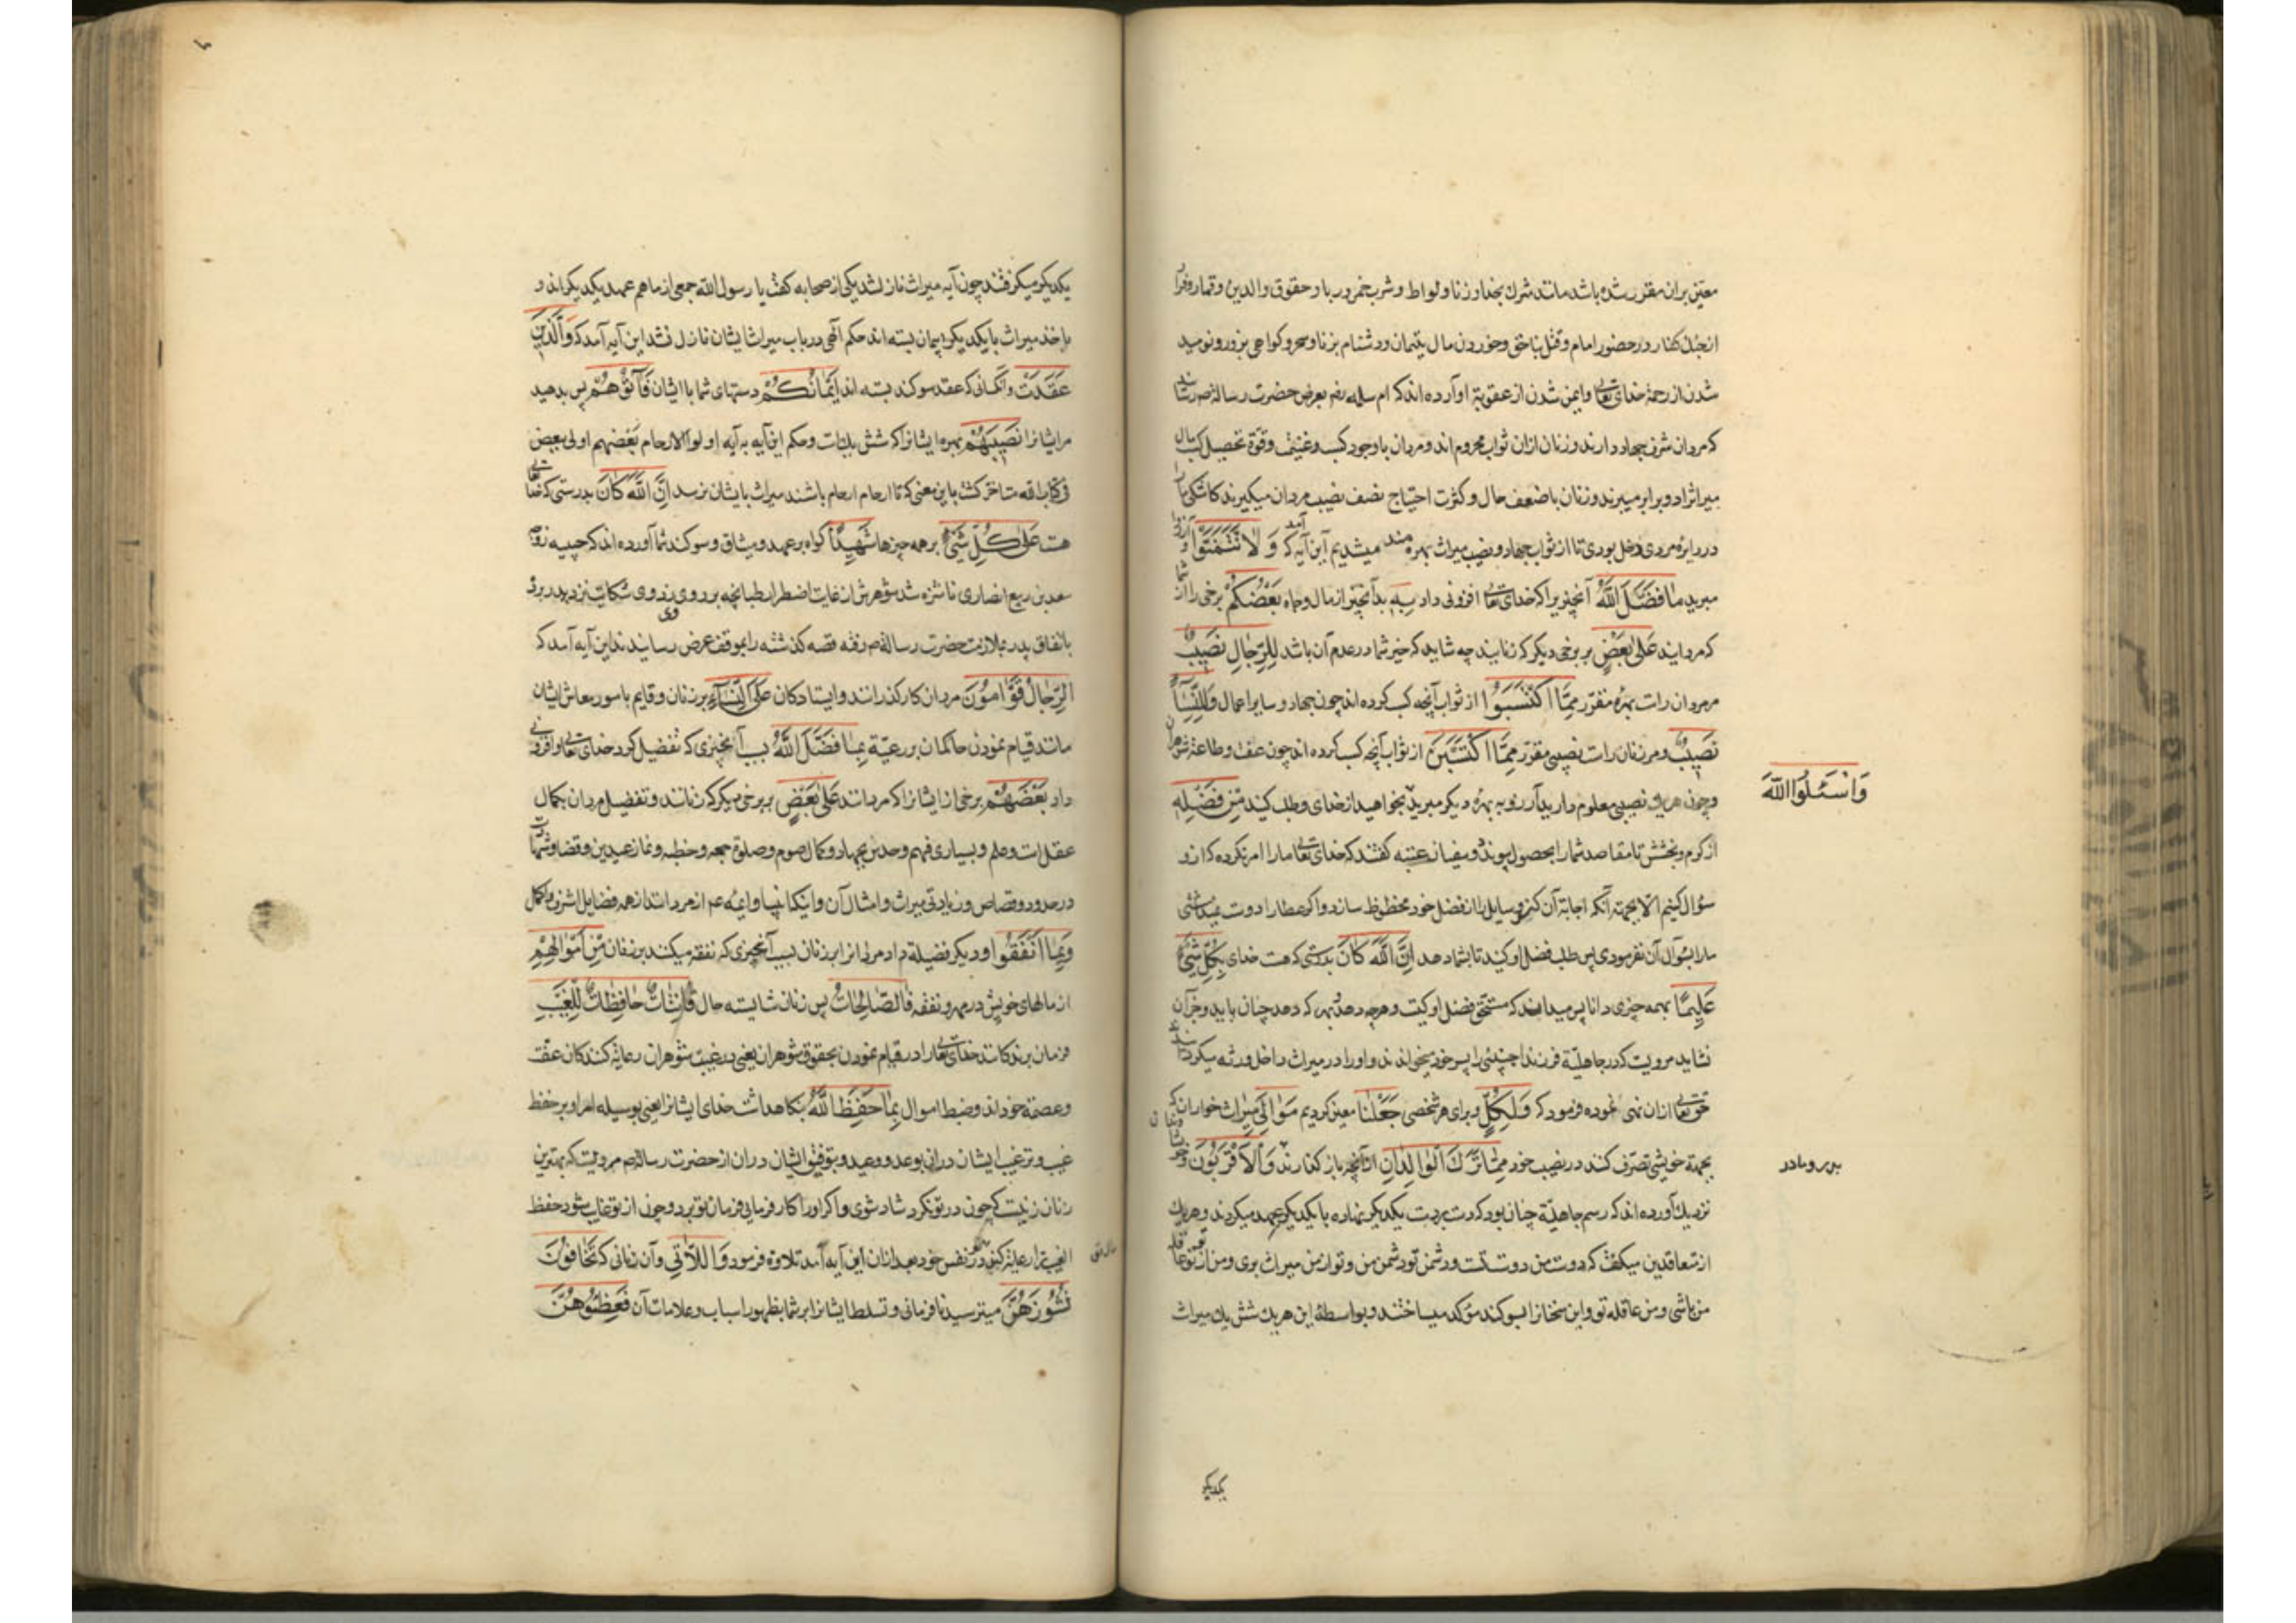 معین بران مقرر شده باشد مانند شرک بخدا و زنا و لواط و شرب خمر و ربا و حقوق والدین و قمار و فرار
از جنک کفار در حضور امام و قتل بناحق و خوردن مال یتیمان و دشنام بزنا و سحر و کواهی بزور و نومید
شدن از رحمة خدای تعالی و ایمن شدن از عقوبة او آورده اند که ام سلمه رضه بعرض حضرت رسالة صم رسانید
که مردان شرف جهاد دارند و زنان ازان ثواب محروم اند و مردان با وجود کسب و غنیمت و قوة تحصیل کسب مال
میراث را دو برابر میبرند و زنان با ضعف حال و کثرت احتیاج نصف نصیب مردان میکیرند کاشکی ما را
در دایره مردی دخل بودی تا از ثواب جهاد و نصیب میراث بهره مند میشدیم این آیه آمد که وَلَا تَتَمَنَّوْا و آرزو
مبرید مَا فَضَّلَ اللَّهُ آنچیزیرا که خدای تعالی افزونی داد بِهِ بدآنچیز از مال و جاه بَعْضَكُمْ برخی را از شما
که مردانید عَلَىٰ بَعْضٍ بر برخی دیکر که زنانید چه شاید که خیر شما در عدم آن باشد لِلرِّجَالِ نَصِيبٌ
مر مردان راست بهره مقرر مِمَّا اكْتَسَبُوا از ثواب آنچه کسب کرده اند چون جهاد و سایر اعمال وَلِلنِّسَاءِ
نَصِيبٌ و مر زنان راست نصیبی مقرر مِمَّا اكْتَسَبْنَ از ثواب آنچه کسب کرده اند چون عفت و طاعة شوهران
و چون هر یو نصیبی معلوم دارید آرزو به بهره دیکر مبرید وَاسْئَلُوا اللَّهَ بخواهید از خدای و طلب کنید مِنْ فَضْلِهِ
از کرم و بخشش تا مقاصد شما را بحصول پیوندد و سفیان عتبه کفتند که خدای تعالی ما را امر نکرده که ازو
سؤال کنیم الا بجهة آنکه اجابة آن کند و سایل را از فضل خود محظوظ سازد و اکر عطا را دوست نمیداشتی
ما را بسؤال آن نفرمودی پس طلب فضل او کنید تا بشما دهد إِنَّ اللَّهَ كَانَ بدرستی که هست خدای بِكُلِّ شَيْءٍ
عَلِيمًا بهمه چیزی دانا پس میداند که مستحق فضل او کیست و هرچه دهد بهر که دهد چنان باید و جز آن
نشاید مرویست که در جاهلیة فرزند اجنبی را پسر خود میخواندند و او را در میراث داخل ورثه میکردانیدند
حق تعالی ازان نهی نموده فرمود که وَلِكُلٍّ و برای هر شخصی جَعَلْنَا معین کردیم مَوَالِيَ میراث خواران که
بجهة خویشی تصرف کنند در نصیب خود مِمَّا تَرَكَ الْوَالِدَانِ ازآنچه باز کذارند پدر و مادر وَالْأَقْرَبُونَ و خویشان
نزدیک آورده اند که رسم جاهلیة چنان بود که دست بر دست یکدیکر نهاده با یکدیکر عهد میکردند و هر یک
از متعاقدین میکفت که دوست من دوست تست و دشمن تو دشمن من و تو از من میراث بری و من از تو و تو عاقله
من باشی و من عاقله تو و این سخنانرا بسوکند مؤکد میساختند و بواسطه این هر یک شش یک میراث
یکدیکر
یکدیکر میکرفتند چون آیه میراث نازل شد یکی از صحابه کفت یا رسول الله جمعی از ما هم عهد یکدیکر اند و
باخذ میراث با یکدیکر پیمان بسته اند حکم آلهی در باب میراث ایشان نازل نشد این آیه آمد که وَالَّذِينَ
عَقَدَتْ و آنکسانی که عقد سوکند بسته اند أَيْمَانُكُمْ دستهای شما با ایشان فَآتُوهُمْ پس بدهید
مر ایشانرا نَصِيبَهُمْ بهره ایشانرا که شش یکست و حکم این آیه به آیه اولوا الارحام بعضهم اولی ببعض
فی کتاب الله متأخر کشت باین معنی که تا ارحام باشند میراث بایشان نرسد إِنَّ اللَّهَ كَانَ بدرستی که خدای تعالی
هست عَلَىٰ كُلِّ شَيْءٍ بر همه چیزها شَهِيدًا کواه بر عهد و میثاق و سوکند شما آورده اند که حبیبه زوجه
سعد بن ربیع انصاری ناشزه شد شوهرش از غایت اضطرار طبانچه بر روی وی زد وی شکایت نزد پدر برد
باتفاق پدر بملازمت حضرت رسالة صم رفته قصه کذشته را بموقف عرض رسانیدند این آیه آمد که
الرِّجَالُ قَوَّامُونَ مردان کارکذرانند و ایستادکان عَلَى النِّسَاءِ بر زنان و قایم بامور معاش ایشان
مانند قیام نمودن حاکمان بر رعیة بِمَا فَضَّلَ اللَّهُ بسبب آنچیزی که تفضیل کرد خدای تعالی و افزونی
داد بَعْضَهُمْ برخی از ایشانرا که مردانند عَلَىٰ بَعْضٍ بر برخی دیکر که زنانند و تفضیل مردان بکمال
عقلست و علم و بسیاری فهم و حدس و جهاد و کمال صوم و صلوة جمعه و خطبه و نماز عیدین و قضا و شهادت
در حدود و قصاص و زیادتی میراث و امثال آن و اینکه انبیا و ایمه عم از مردانند از همه فضایل اشرف و اکمل
وَبِمَا أَنْفَقُوا و دیکر فضیلة داد مردانرا بر زنان بسبب آنچیزی که نفقه میکنند بر زنان مِنْ أَمْوَالِهِمْ
از مالهای خویش در مهر و نفقه فَالصَّالِحَاتُ پس زنان شایسته حال قَانِتَاتٌ حَافِظَاتٌ لِلْغَيْبِ
فرمان برندکانند خدای تعالی را در قیام نمودن بحقوق شوهران یعنی در غیبت شوهران رعایة کنندکان عفت
و عصمة خود اند و ضبط اموال بِمَا حَفِظَ اللَّهُ بنکاهداشت خدای ایشانرا یعنی بوسیله امر او بر حفظ
غیب و ترغیب ایشان دران بوعد و وعید و بتوفیق ایشان دران از حضرت رسالة صم مرویست که بهترین
زنان زنیست که چون در تو نکرد شاد شوی و اکر او را کار فرمایی فرمان تو برد و چون از تو غایب شود حفظ
الغیب ترا رعایة کند در نفس خود بعد ازان این آیه آمد تلاوة فرمود وَاللَّاتِي و آن زنانی که تَخَافُونَ
نُشُوزَهُنَّ میترسید نافرمانی و تسلط ایشانرا بر شما بظهور اسباب و علامات آن فَعِظُوهُنَّ